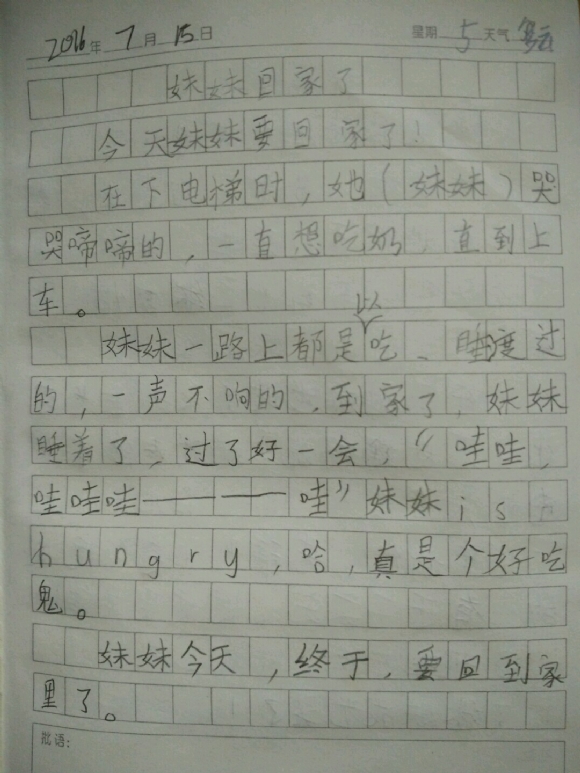 2016年7月15日 星期5天气多云
妹妹回家了
今天妹妹要回家了!
在下电梯时,她(妹妹)哭
哭啼啼的,一直想吃奶,直到上
车。
妹妹一路上都是以吃、睡度过
的,一声不响的,到家了,妹妹
睡着了,过了好一会,“哇哇,
哇哇哇——— ———哇”妹妹is
hungry,哈,真是个好吃
鬼。
妹妹今天,终于,要回到家
里了。
批语: